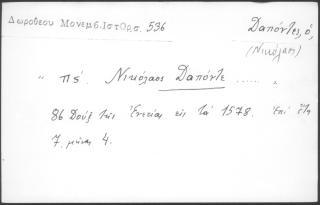 Δωροθεου Μονεμβ. Ιστορσ. 536
Δαπόντες, ὁ,
(Νικόλαος)
" πς΄. Νικόλαος Δαπόντε ...... "
86 Δούξ τῆς Ἑνετίας εἰς τὰ 1578. Ἐπὶ ἔτη
7. μῆνας 4.